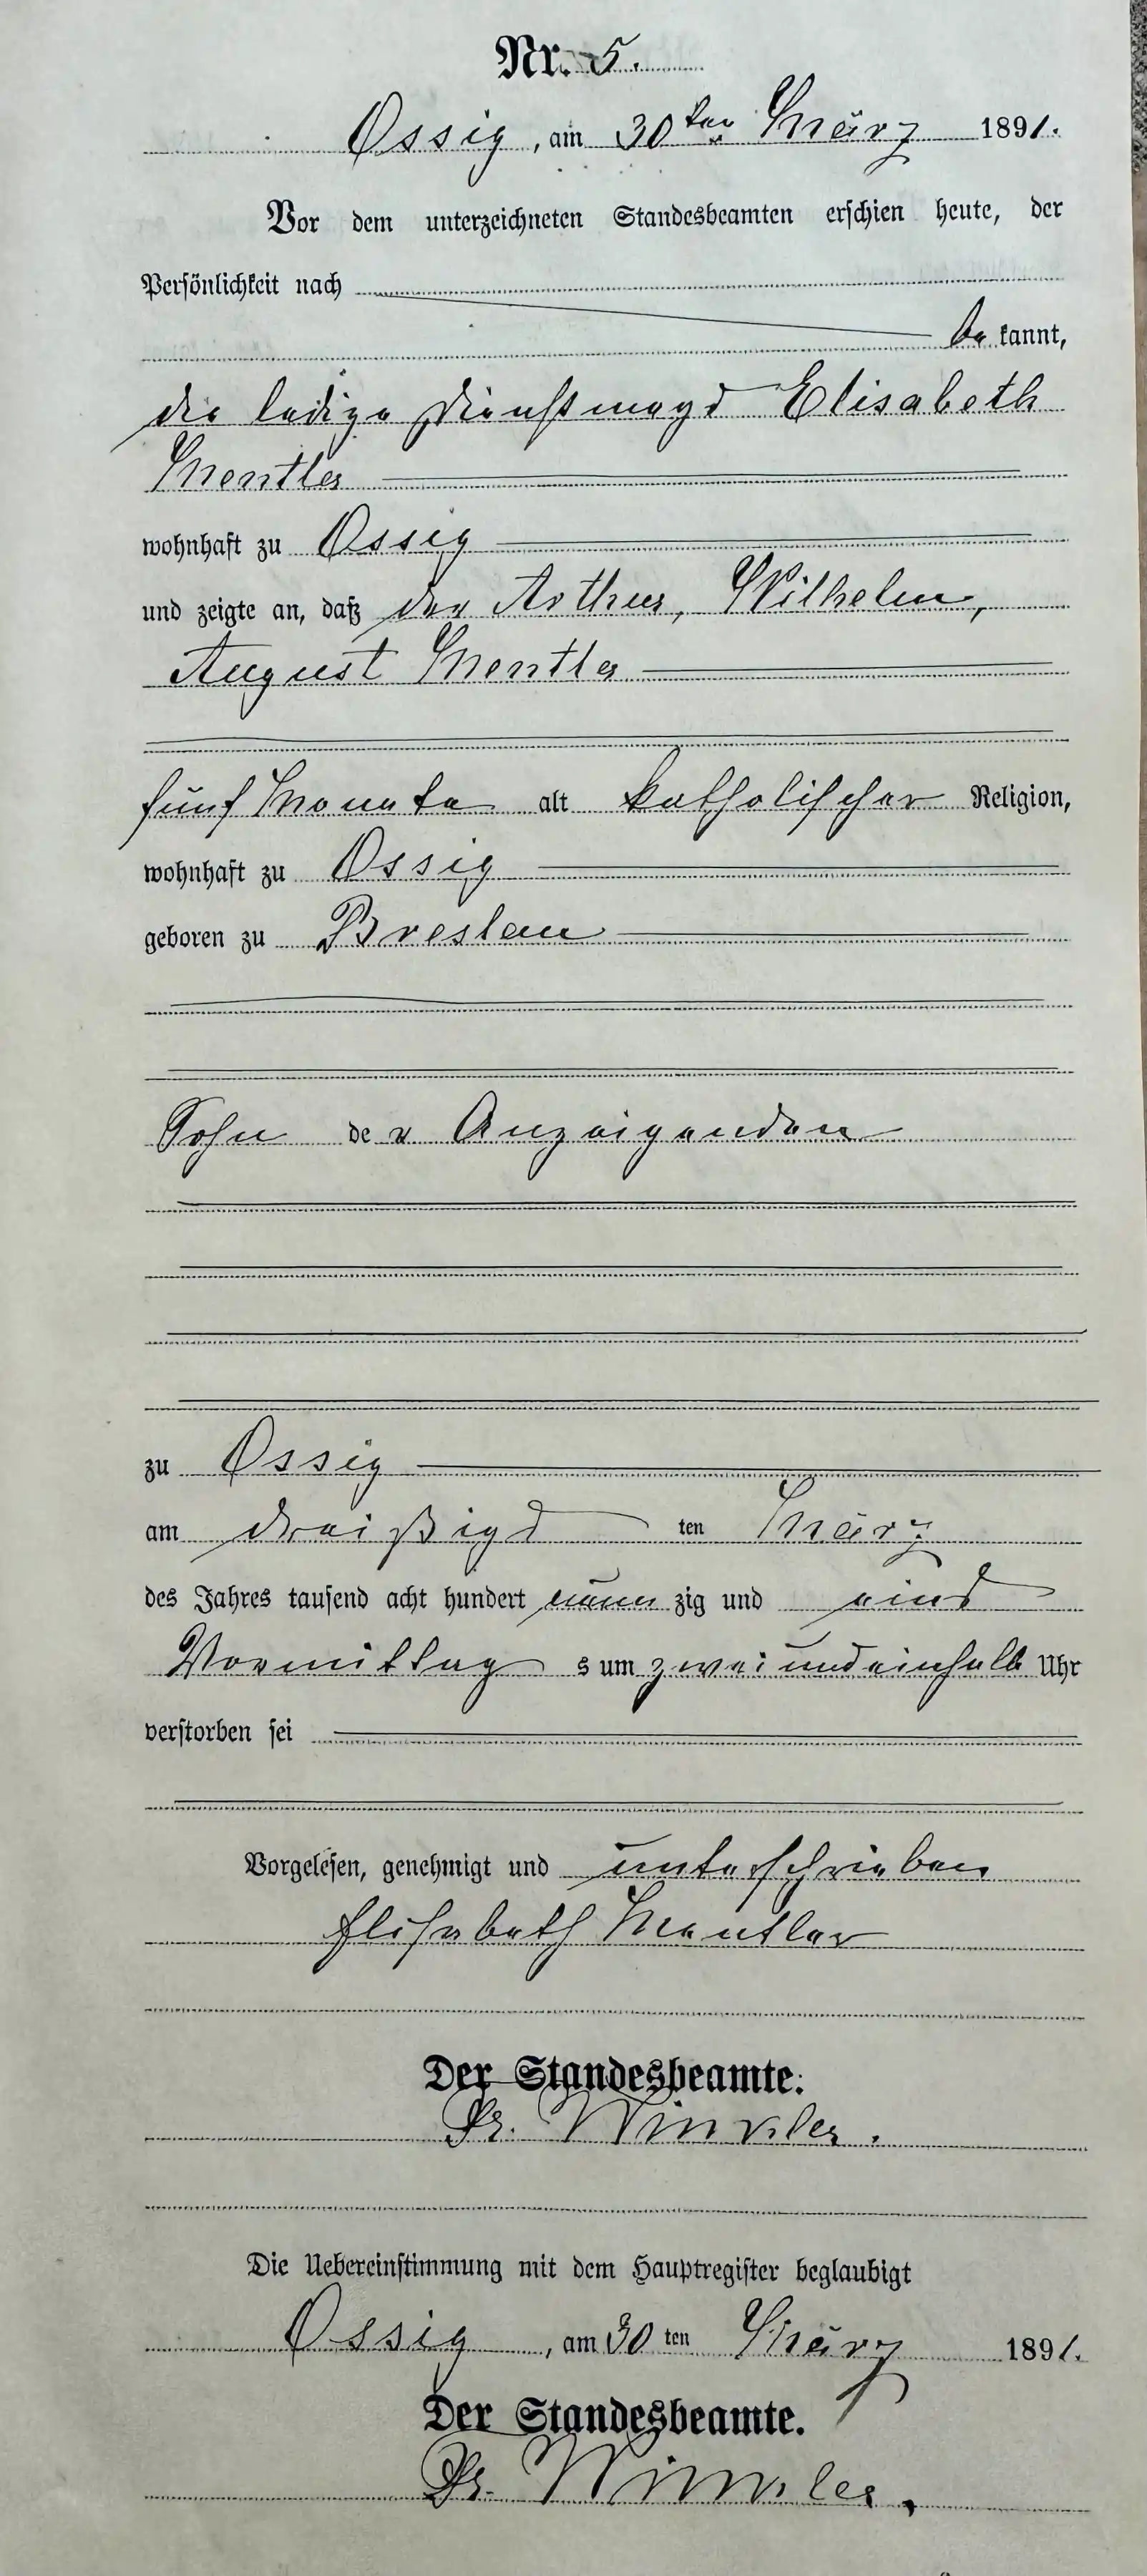 Nr. 5.
Ossig, am 30ten März 1891.
Vor dem unterzeichneten Standesbeamten erschien heute, der
Persönlichkeit nach
be kannt,
die ledige Dienstmagd Elisabeth
Mentler
wohnhaft zu Ossig
und zeigte an, daß der Arthur, Wilhelm,
August Mentler
fünf Monate alt katholischer Religion,
wohnhaft zu Ossig
geboren zu Breslau
Sohn der Anzeigenden
zu Ossig
am dreißigs ten März
des Jahres tausend acht hundert neun zig und eins
Vormittag s um zwei und einhalb Uhr
verstorben sei
Vorgelesen, genehmigt und unterschrieben
Elisabeth Mentler
Der Standesbeamte:
Dr. Winkler.
Die Uebereinstimmung mit dem Hauptregister beglaubigt
Ossig, am 30 ten März 1891.
Der Standesbeamte.
Dr. Winkler.